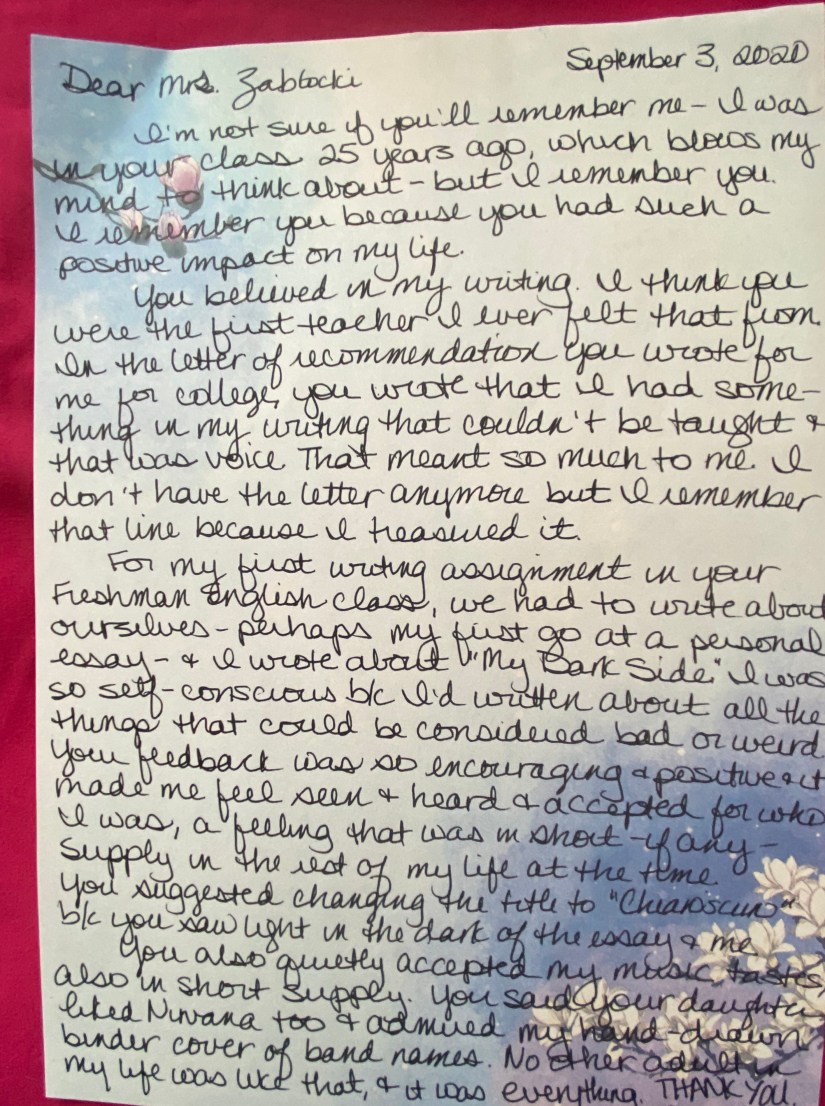 September 3, 2020
Dear Mrs. Zabtocki
I'm not sure if you'll remember me - I was
in your class 25 years ago, which blows my
mind to think about - but I remember you.
I remember you because you had such a
positive impact on my life.
You believed in my writing. I think you
were the first teacher I ever felt that from.
In the letter of recommendation you wrote for
me for college, you wrote that I had some-
thing in my writing that couldn't be taught &
that was voice. That meant so much to me. I
don't have the letter anymore but I remember
that line because I treasured it.
For my first writing assignment in your
Freshman English class, we had to write about
ourselves - perhaps my first go at a personal
essay - & I wrote about "My Dark Side." I was
so self-conscious b/c I'd written about all the
things that could be considered bad or weird.
Your feedback was so encouraging & positive & it
made me feel seen & heard & accepted for who
I was, a feeling that was in short - if any -
supply in the rest of my life at the time.
You suggested changing the title to "Chiaroscuro"
b/c you saw light in the dark of the essay & me.
You also quietly accepted my music tastes,
also in short supply. You said your daughter
liked Nirvana too & admired my hand-drawn
binder cover of band names. No other adult in
my life was like that, & it was everything. THANK YOU.